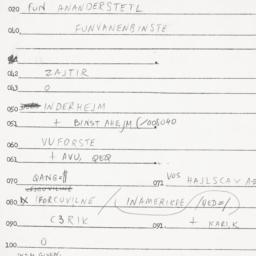 020 FUN ANANDERSTETL
040 FUNVANENBINSTE
042 ZAJTIR
043 0
050 INDERHEJM
051 + BINST AHEJM (/005040
060 VVFORSTE
061 + AVU, QEQ
070 QANG= 071 VUS HAJLSCAV
080 IFORCUVILNE INAMERIKDE /QED=/
090 C3RIK 091 + KARIK
100 0